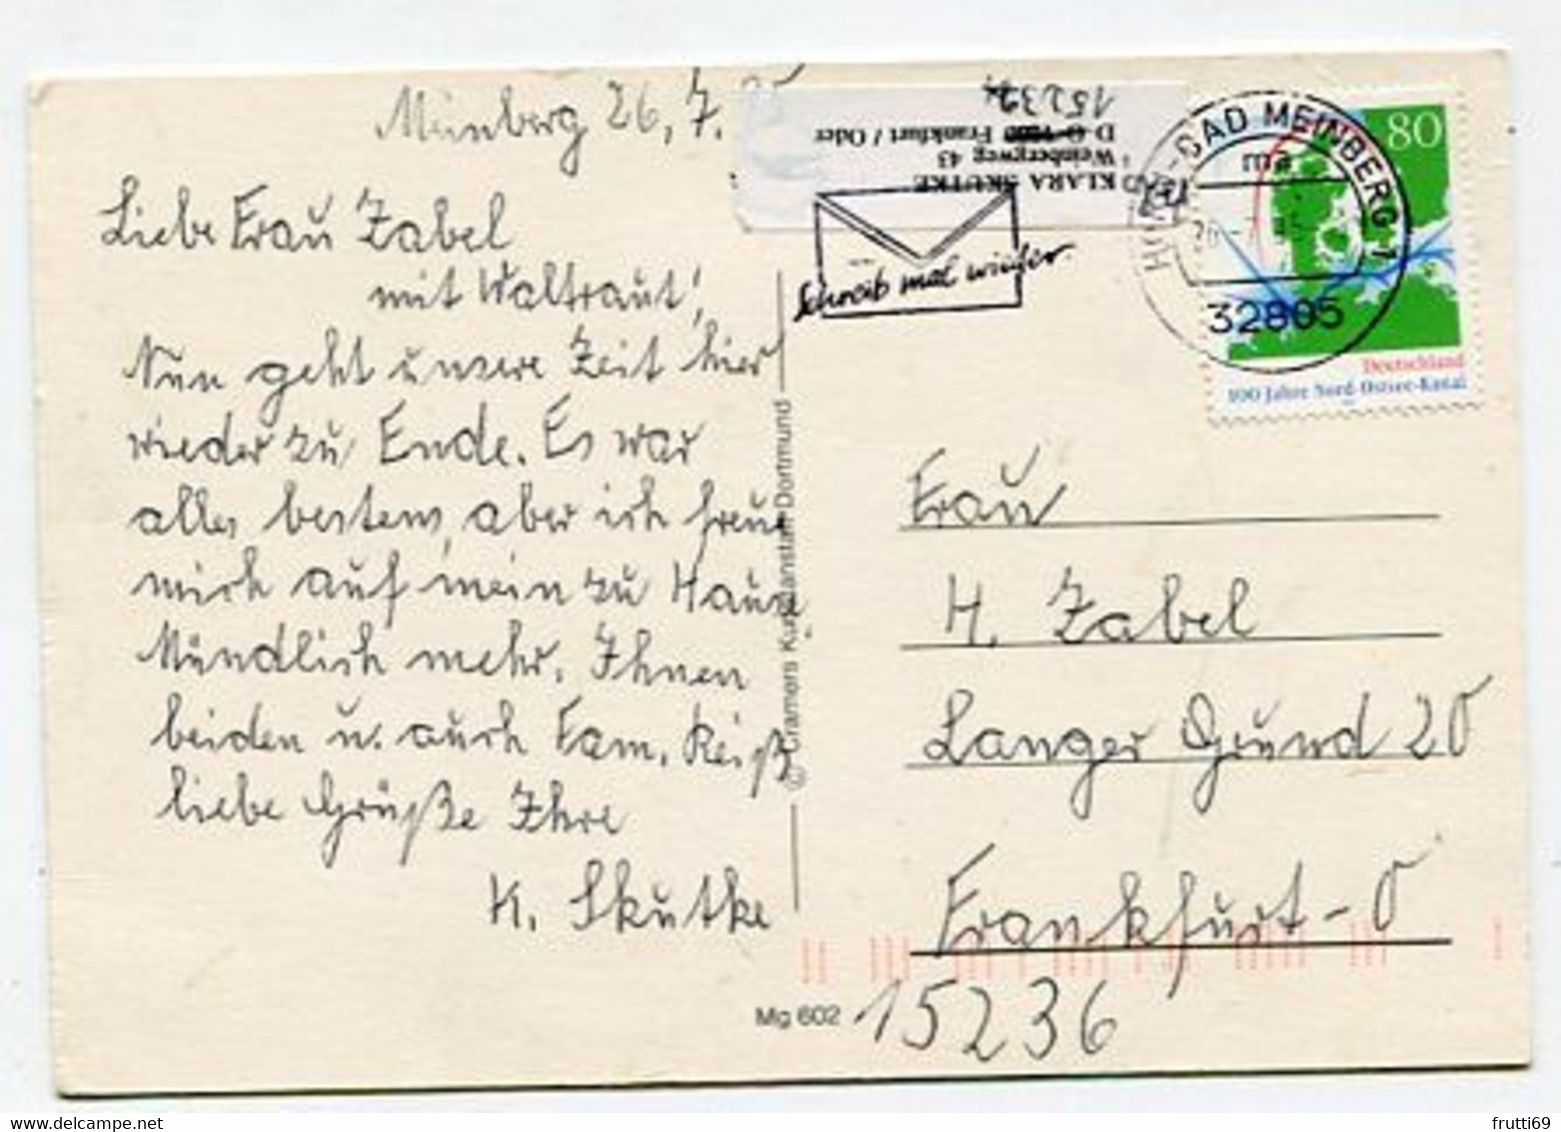 Meinberg 26.7.
Liebe Frau Zabel
mit Waltraut!,
Nun geht unsere Zeit hier
wieder zu Ende. Es war
alles bestens, aber ich freue
mich auf mein zu Hause,
Mündlich mehr. Ihnen
beiden u. auch Fam. Reiß
liebe Grüße Ihre
K. Skutke
KLARA SKUTKE
Weinbergweg 43
Frankfurt / Oder
Schreib mal wieder
BAD MEINBERG 1
ma
32805
80
Deutschland
100 Jahre Nord-Ostsee-Kanal
© Cramers Kunstanstalt Dortmund
Mg 602
Frau
H. Zabel
Langer Grund 20
Frankfurt-O
15236
delcampe.net
frutti69